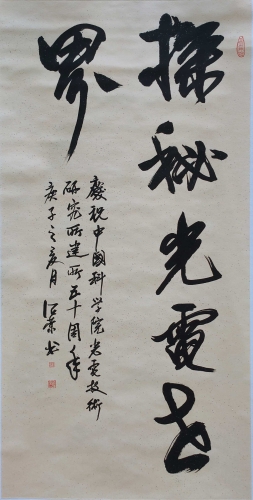 探秘光電世
界
慶祝中國科学院光電技術
研究所建所五十周年
庚子之夏月